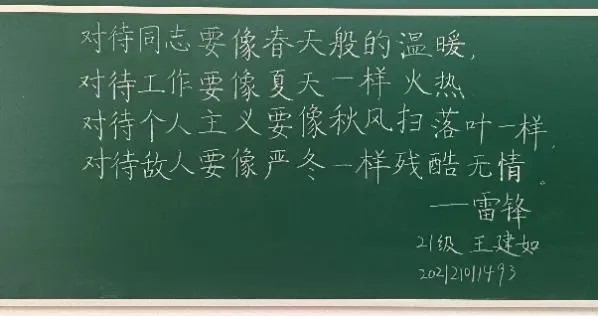 对待同志要像春天般的温暖,
对待工作要像夏天一样火热
对待个人主义要像秋风扫落叶一样,
对待敌人要像严冬一样残酷无情。
——雷锋
21级 王建如
202121011493